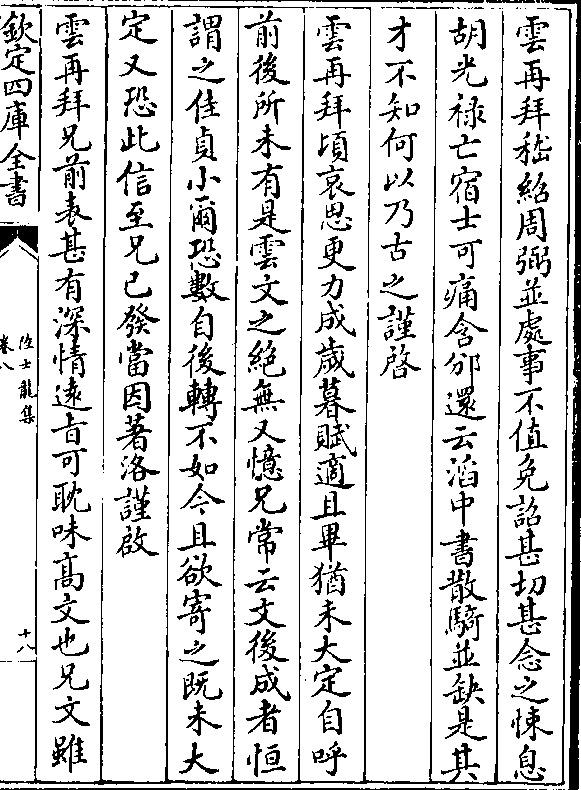 雲再拜嵇紹周弼並處事不值免詔甚切甚念之悚息
胡光祿亡宿士可痛含邠還云滔中書散騎並缺是其
才不知何以乃古之謹啓
雲再拜頃哀思更力成歲暮賦適且畢猶未大定自呼
前後所未有是雲文之絕無又憶兄常云文後成者恒
謂之佳貞小爾恐數自後轉不如今且欲寄之既未大
定又恐此信至兄已發當因著洛謹啟
雲再拜兄前表甚有深情遠旨可耽味高文也兄文雖
欽定四庫全書
陸士龍集
卷八
十八